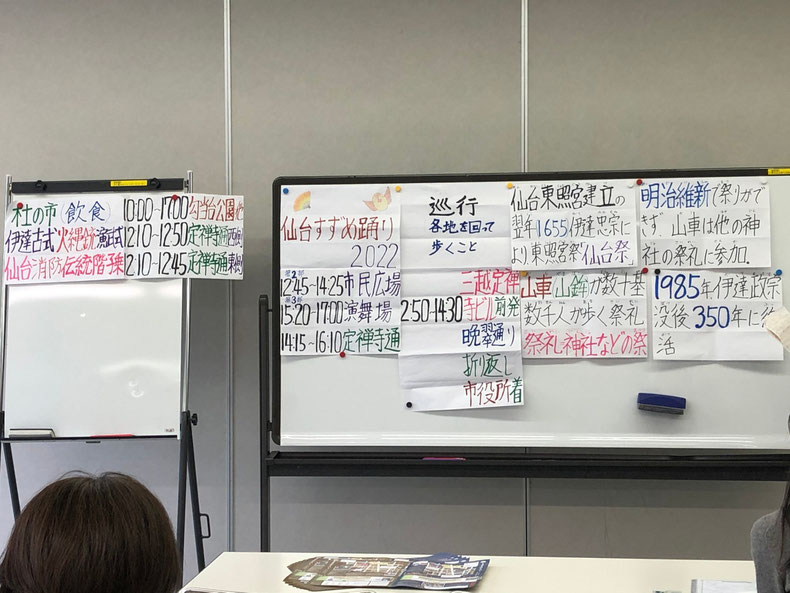 杜の市(飲食) 10:00-17:00 勾当台公園他
伊達古式火縄銃演武 12:10-12:50 定禅寺通西側
仙台消防伝統階子乗 12:10-12:45 定禅寺通東側
仙台すずめ踊り
2022
第2部
12:45-14:25 市民広場
第3部
15:20-17:00 演舞場
14:15~16:10 定禅寺通
巡行
各地を回って
歩くこと
三越定禅
2:50-14:30 寺ビル前発
晩翠通り
折り返し
市役所着
仙台東照宮建立の
翌年1655伊達忠宗に
より東照宮祭「仙台祭」
山車山鉾が数十基
数千人が歩く祭礼
祭礼神社などの祭
明治維新で祭りがで
きず、山車は他の神
社の祭礼に参加。
1985年伊達政宗
没後350年に
活